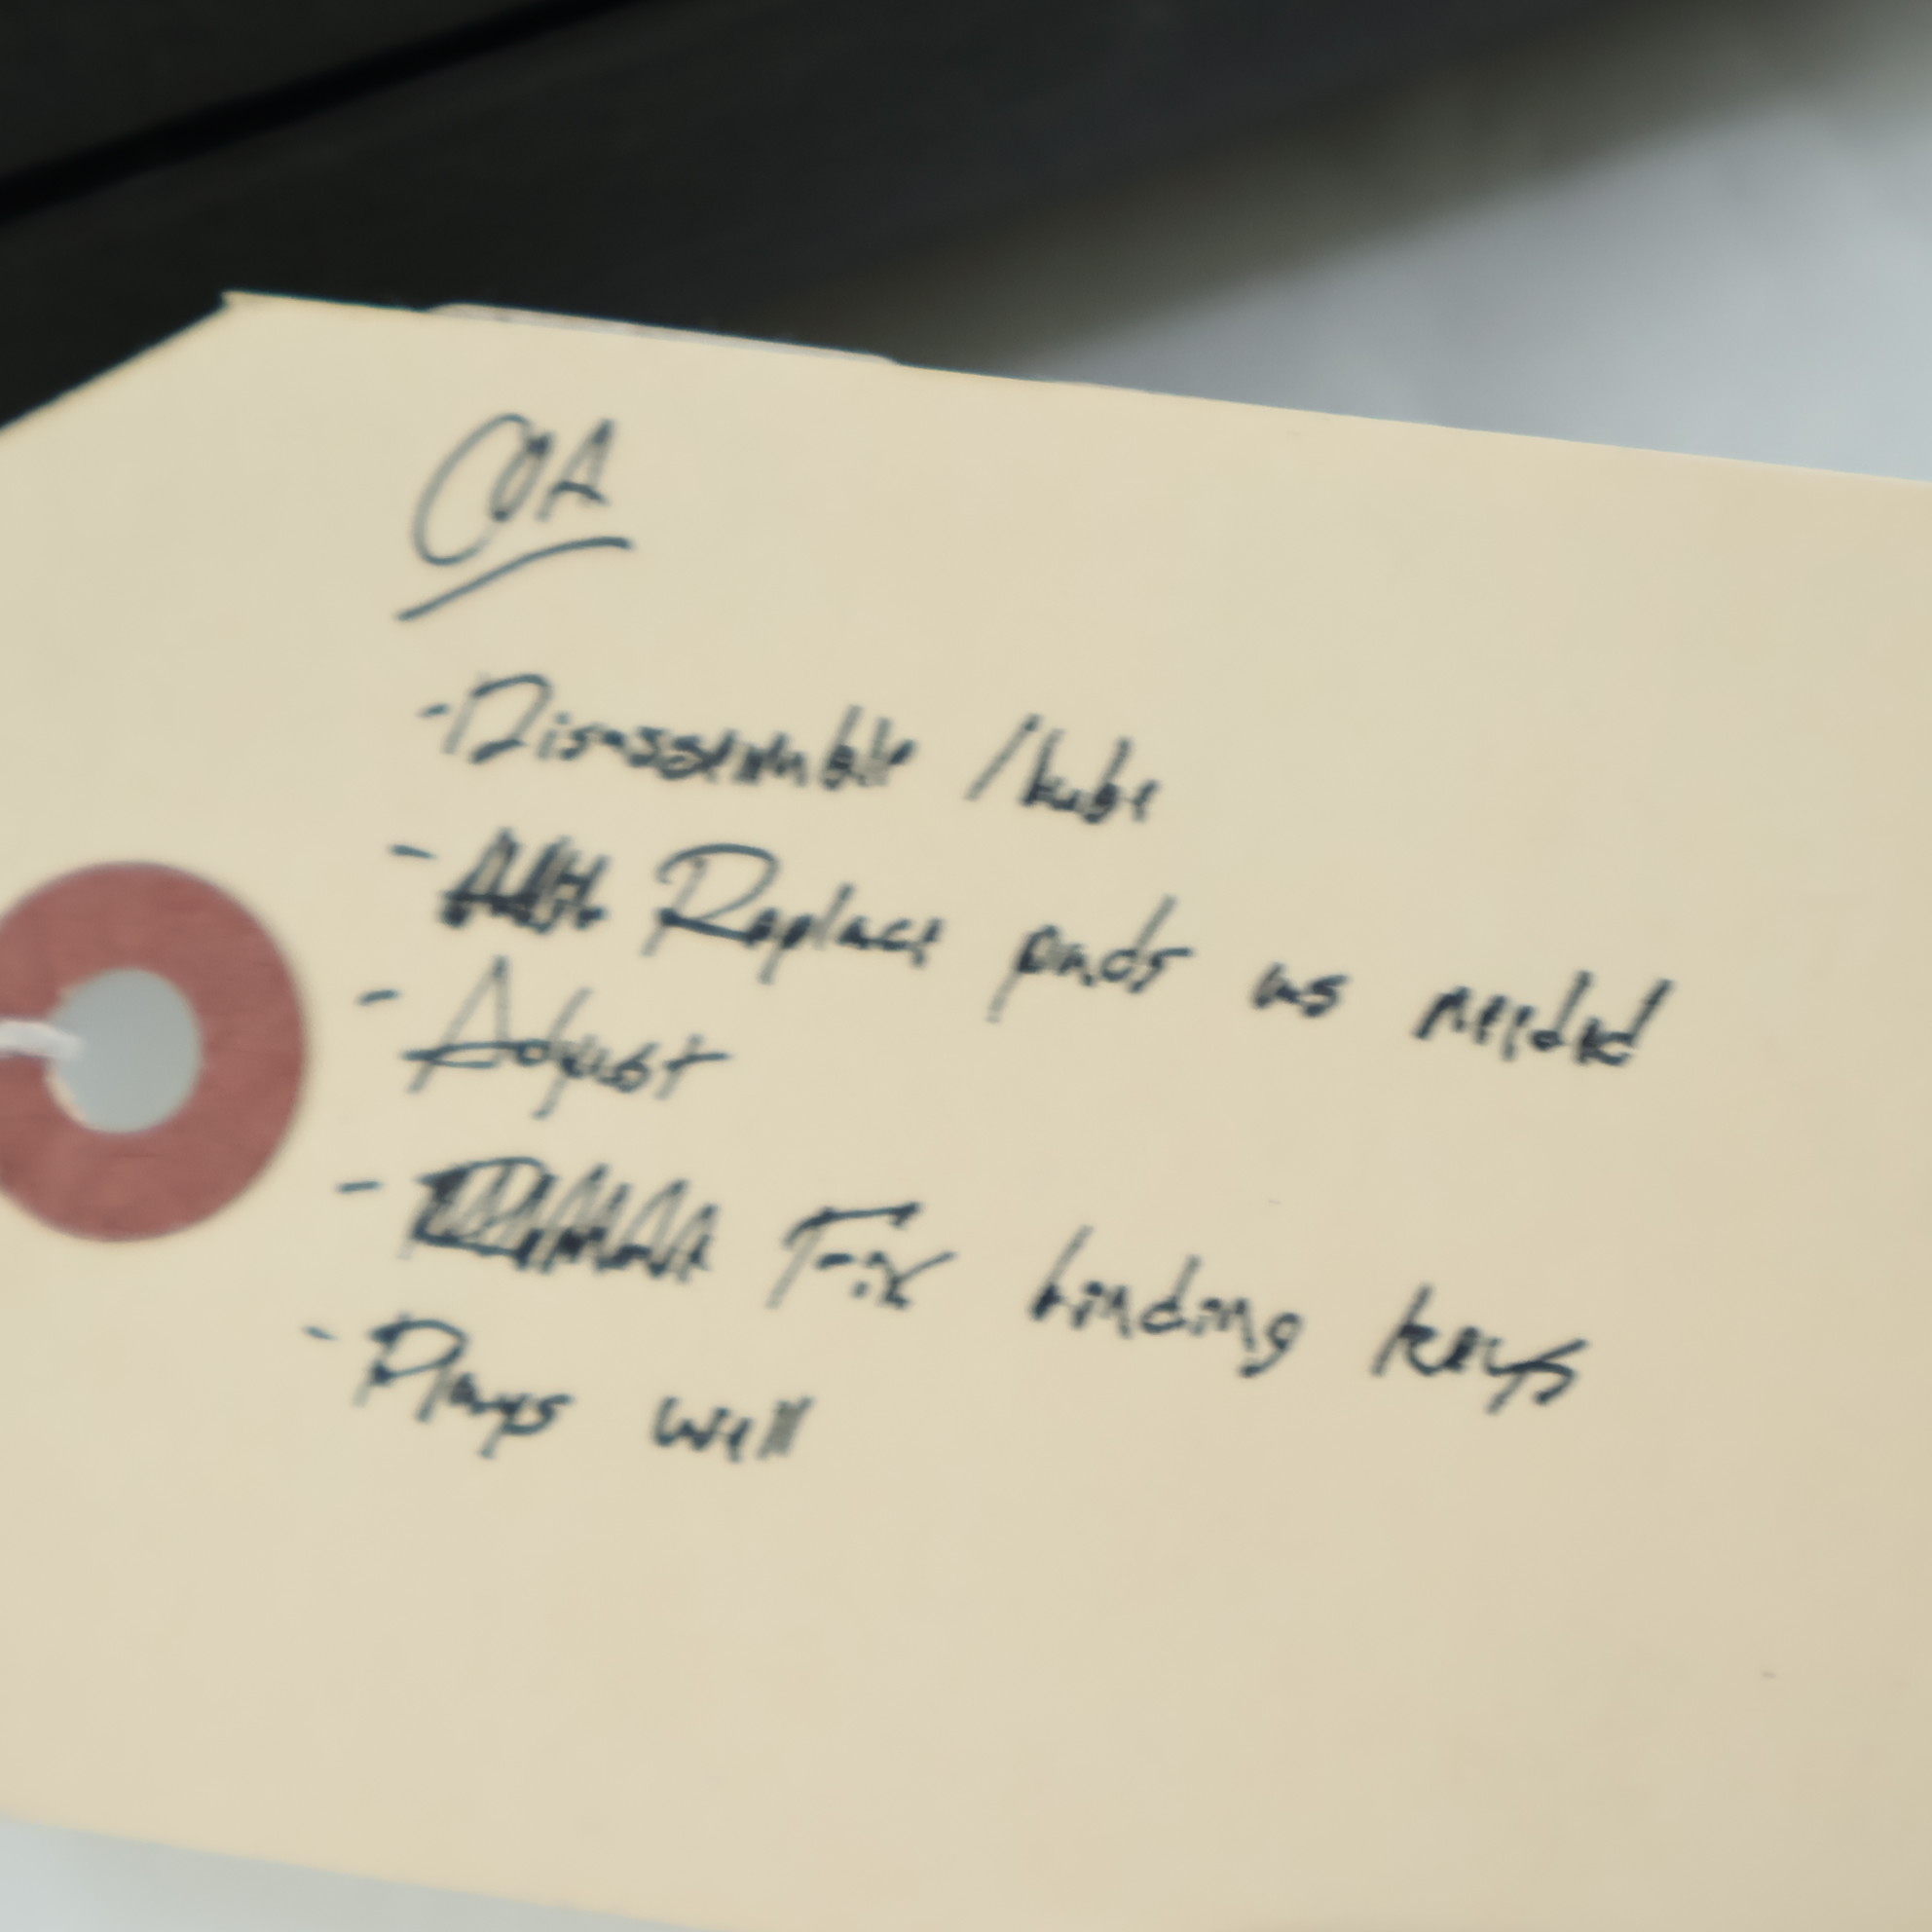 COA
- Disassemble / lube
- Replace pads as needed
- Adjust
- Fix binding keys
- Plays well